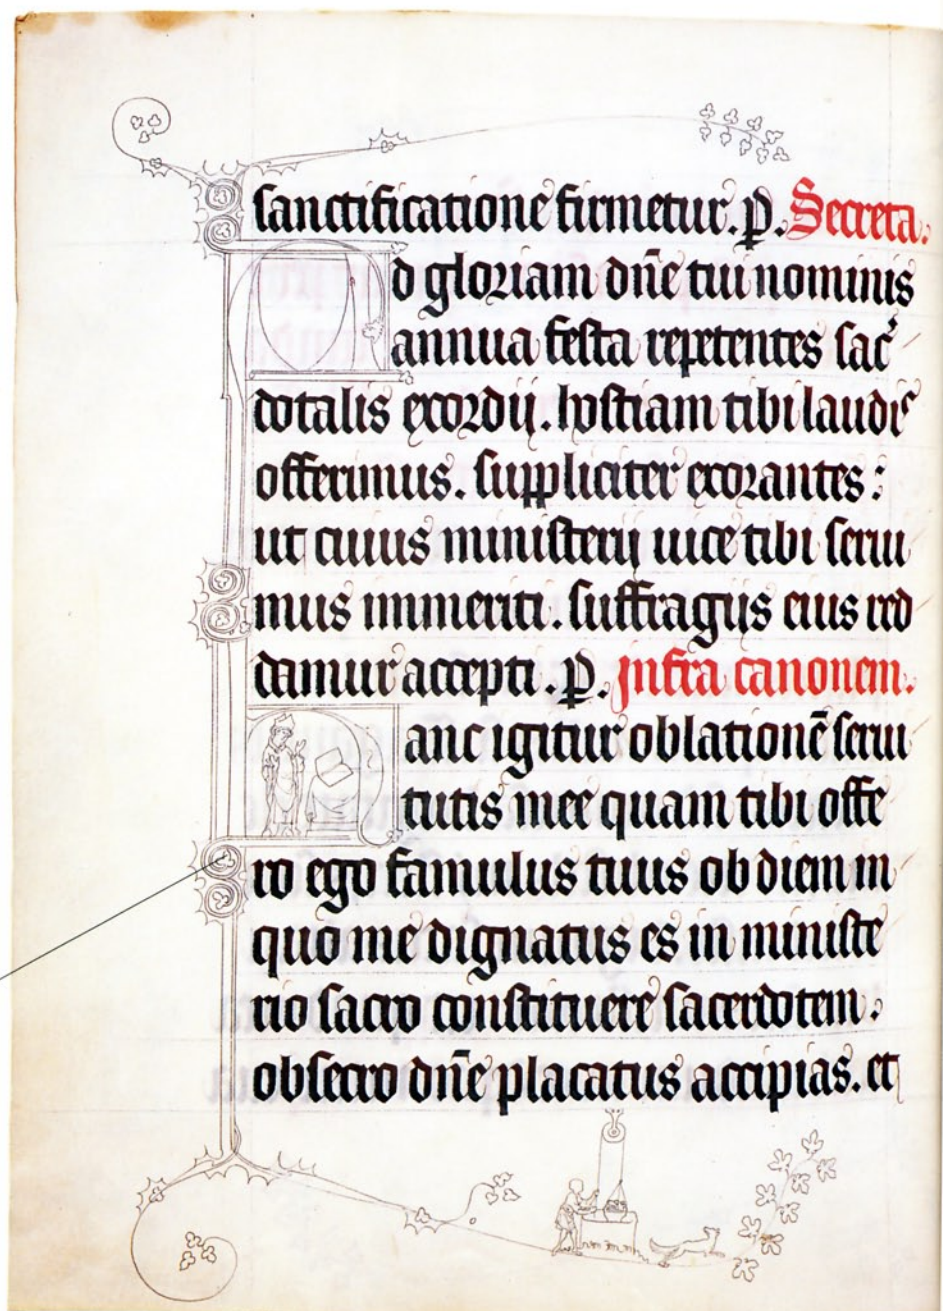 sanctificatione firmetur. p. Secreta.
d gloriam dn̄e tui nominis
annua festa repetentes sac̄
dotalis exordij. hostiam tibi laudis
offerimus. suppliciter exorantes:
ut cuius ministerij uice tibi serui
mus immeriti. suffragijs eius red
damur accepti. p. Infra canonem.
anc igitur oblationē serui
tutis mee quam tibi offe
ro ego famulus tuus ob diem in
quo me dignatus es in ministe
rio sacro constituere sacerdotem.
obsecro dn̄e placatus accipias. et